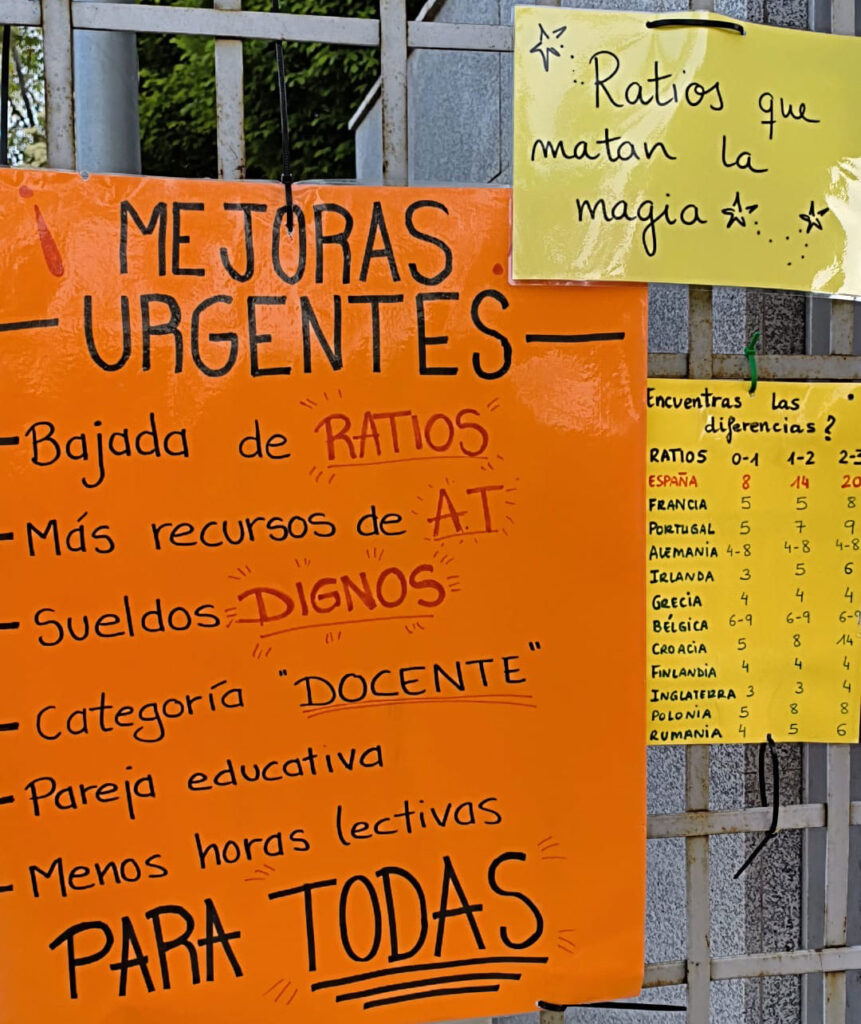 ¡ MEJORAS
URGENTES
- Bajada de RATIOS
- Más recursos de A.T
- Sueldos DIGNOS
- Categoría "DOCENTE"
- Pareja educativa
- Menos horas lectivas
PARA TODAS
Ratios que
matan la
magia
Encuentras las
diferencias?
RATIOS 0-1 1-2 2-3
ESPAÑA 8 14 20
FRANCIA 5 5 8
PORTUGAL 5 7 9
ALEMANIA 4-8 4-8 4-8
IRLANDA 3 5 6
GRECIA 4 4 4
BÉLGICA 6-9 6-9 6-9
CROACIA 5 8 14
FINLANDIA 4 4 4
INGLATERRA 3 3 4
POLONIA 5 8 8
RUMANIA 4 5 6